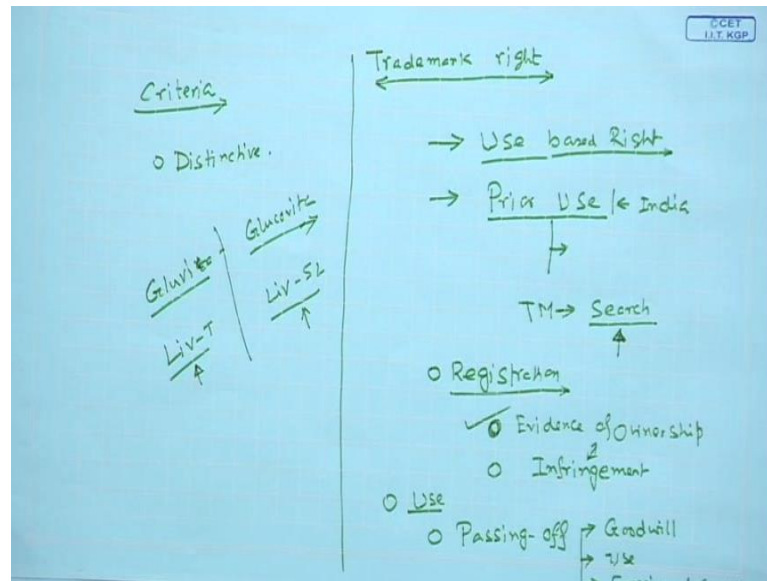 ©CET
I.I.T. KGP
Criteria
o Distinctive.
Gluvita
Glucovita
Liv-T
Liv-52
Trademark right
→ Use based Right
→ Prior Use | ← India
TM → Search
o Registration
✓ o Evidence of Ownership
o Infringement
o Use
o Passing-off → Goodwill
→ Use